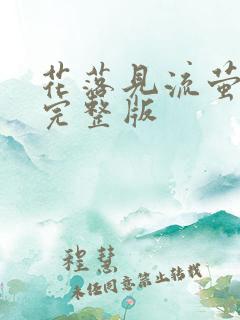 花落见流萤
完整版
程慧
未经同意禁止转载